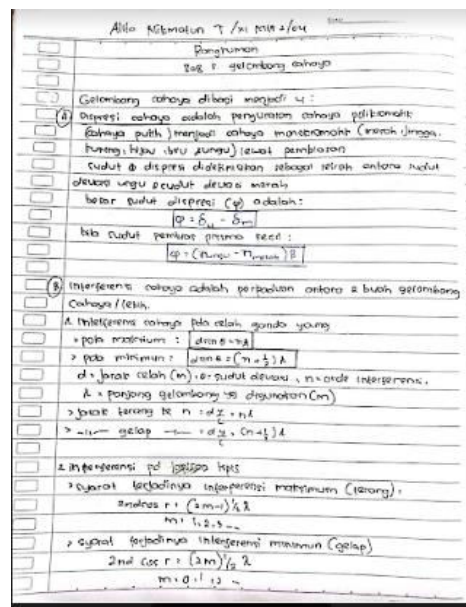 Alifa Nikmatun T /XI MIA 2/04
Rangkuman
Bab 8. gelombang cahaya
Gelombang cahaya dibagi menjadi 4 :
A Dispersi cahaya adalah penguraian cahaya polikromatik
(cahaya putih) menjadi cahaya monokromatik (merah, jingga,
kuning, hijau, biru, ungu) lewat pembiasan
sudut dispersi didefinisikan sebagai selisih antara sudut
deviasi ungu & sudut deviasi merah
besar sudut dispersi (φ) adalah :
φ = δu - δm
bila sudut pembias prisma kecil :
φ = (nungu - nmerah) β
B Interferensi cahaya adalah perpaduan antara 2 buah gelombang
cahaya / lebih.
1. Interferensi cahaya pda celah ganda yang
> pola maksimum : d sin θ = nλ
> pola minimum : d sin θ = (n + ½) λ
d = jarak celah (m), θ = sudut deviasi, n = orde interferensi.
λ = panjang gelombang yg digunakan (m)
> jarak terang ke n = d y/L = nλ
> —"— gelap —"— = d y/L, (n+½) λ
2. interferensi pd lapisan tipis
> syarat terjadinya interferensi maksimum (terang),
2nd cos r = (2m-1) ½ λ
m = 1, 2, 3 ...
> syarat terjadinya interferensi minimum (gelap)
2nd cos r = (2m) ½ λ
m = 0, 1, 2 ...